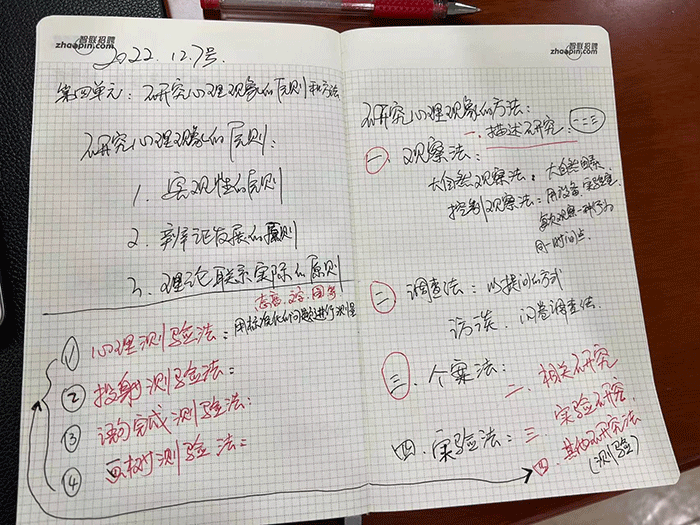 智联招聘
zhaopin.com
2022.12.7号
第四单元：研究心理现象的原则和方法
研究心理现象的原则：
1. 客观性的原则
2. 辩证发展的原则
3. 理论联系实际的原则
志愿、文字、图等
① 心理测验法：用标准化的问题进行测量
② 投射测验法：
③ 语句完成测验法：
④ 画树测验法：
智联招聘
zhaopin.com
研究心理现象的方法：
一、描述研究：一二三
一、观察法：
大自然观察法：大自然因素
控制观察法：用设备、实验室
每次观察一种行为
同一时间点.
二 调查法：以提问的方式
访谈、问卷调查法.
三、个案法：
二、相关研究
四、实验法：
三、实验研究.
四、其他研究法
(测验)